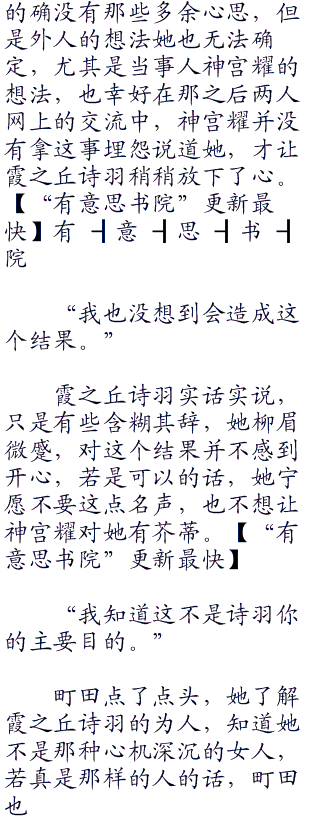 的确没有那些多余心思，但
是外人的想法她也无法确
定，尤其是当事人神宫耀的
想法，也幸好在那之后两人
网上的交流中，神宫耀并没
有拿这事埋怨说道她，才让
霞之丘诗羽稍稍放下了心。
【“有意思书院”更新最
快】有 ┫意 ┫思 ┫书 ┫
院
“我也没想到会造成这
个结果。”
霞之丘诗羽实话实说，
只是有些含糊其辞，她柳眉
微蹙，对这个结果并不感到
开心，若是可以的话，她宁
愿不要这点名声，也不想让
神宫耀对她有芥蒂。【“有
意思书院”更新最快】
“我知道这不是诗羽你
的主要目的。”
町田点了点头，她了解
霞之丘诗羽的为人，知道她
不是那种心机深沉的女人，
若真是那样的人的话，町田
也